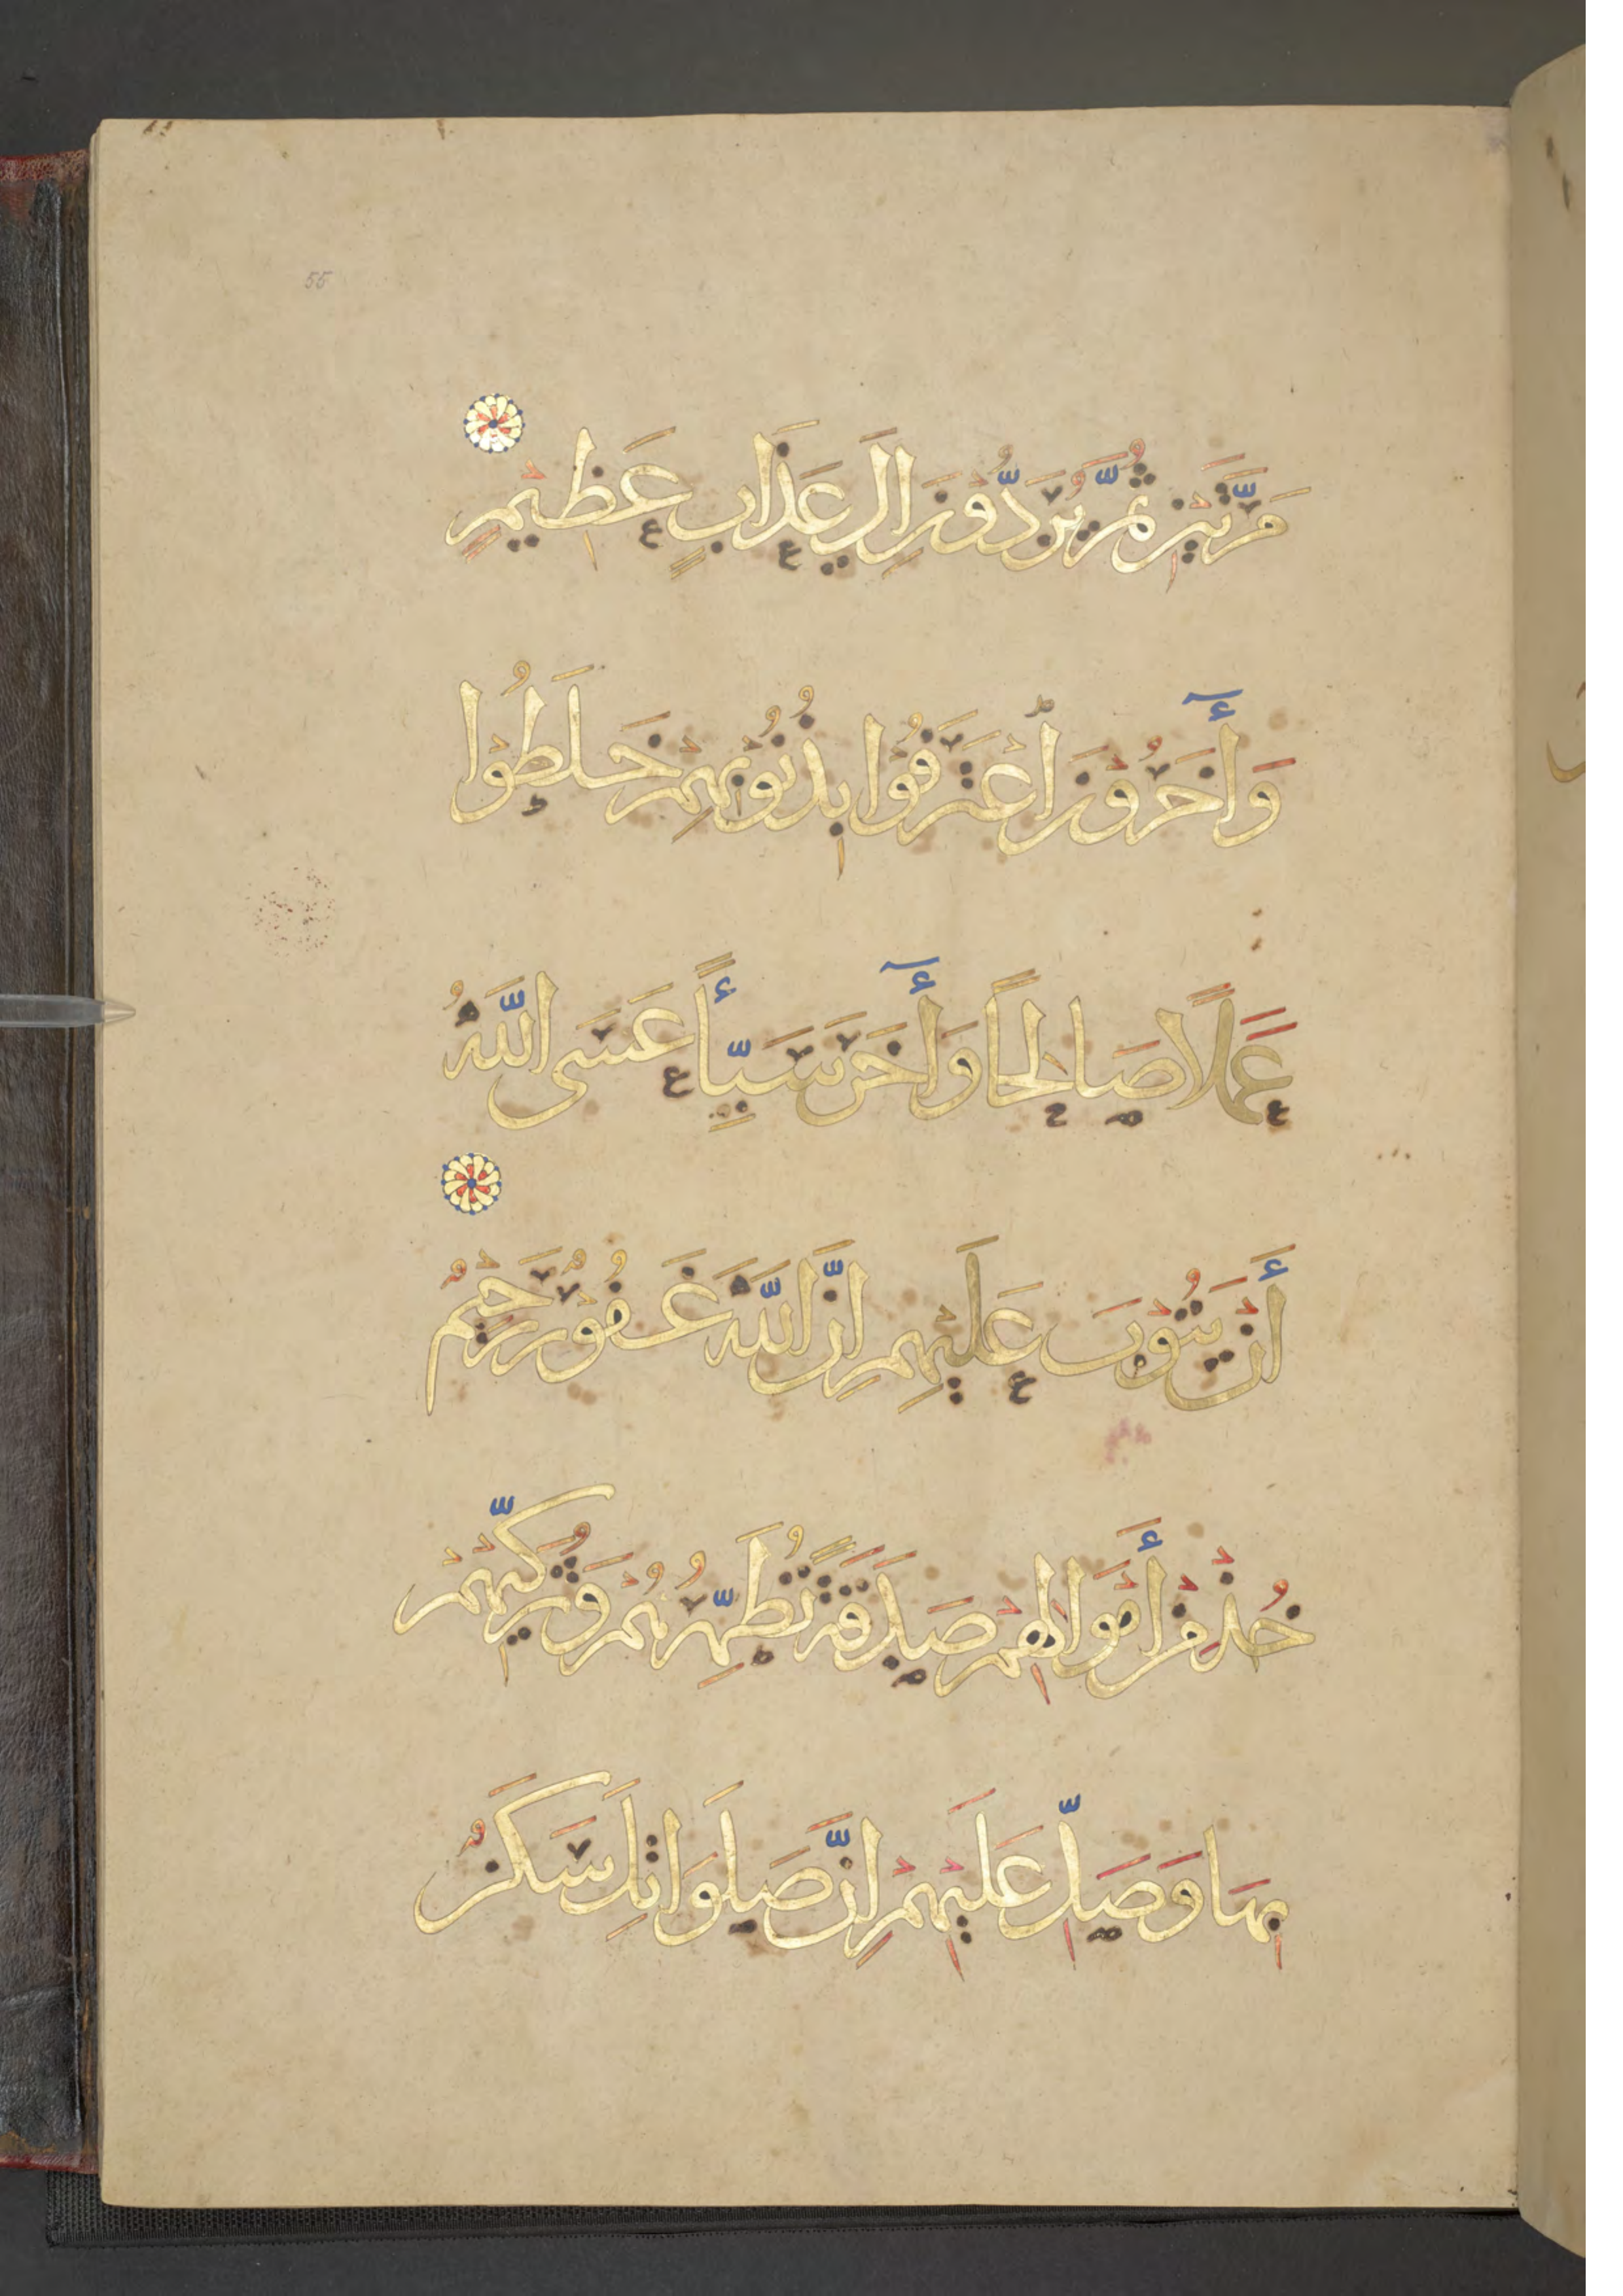 55
مَرَّتَيْنِ ثُمَّ يُرَدُّوْنَ اِلَي عَذَابٍ عَظِيْمٍ
وَأٓخَرُوْنَ اْعْتَرَفُوْا بِذُنُوْبِهِمْ خَلَطُوْا
عَمَلًا صَالِحًا وَأٓخَرَ سَيِّئًا عَسَى اللَّهُ
أَنْ يَتُوْبَ عَلَيْهِمِ اِنَّ اللَّهَ غَفُوْرٌ رَحِيْمٌ
خُذْ مِنْ أَمْوَالِهِمْ صَدَقَةً تُطَهِّرُهُمْ وَتُزَكِّيْهِمْ
بِهَا وَصَلِّ عَلَيْهِمْ اِنَّ صَلَوَاتِكَ سَكَنٌ